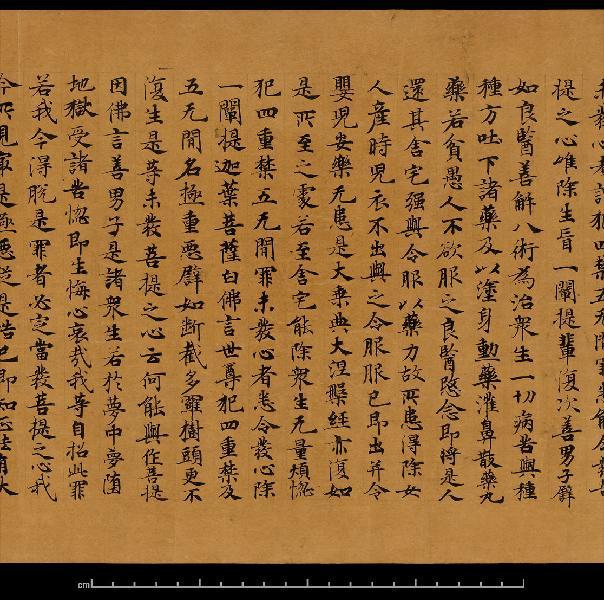 提之心唯除生盲一闡提輩復次善男子辟
如良醫善解八術為治衆生一切病苦與種
種方吐下諸藥及以塗身勳藥灌鼻散藥丸
藥若貧愚人不欲服之良醫愍念即將是人
還其舍宅强與令服以藥力故所患得除女
人産時兒衣不出與之令服服已即出并令
嬰兒安樂无患是大乘典大涅槃經亦復如
是所至之處若至舍宅能除衆生无量煩惚
犯四重禁五无間罪未發心者悉令發心除
一闡提迦葉菩薩白佛言世尊犯四重禁及
五无間名極重惡辟如斷截多羅樹頭更不
復生是等未發菩提之心云何能與作菩提
因佛言善男子是諸衆生若於夢中夢墮
地獄受諸苦惚即生悔心哀哉我等自招此罪
若我今得脫是罪者必定當發菩提之心我
今所見寔是極惡從是悟已即知正法有大
cm